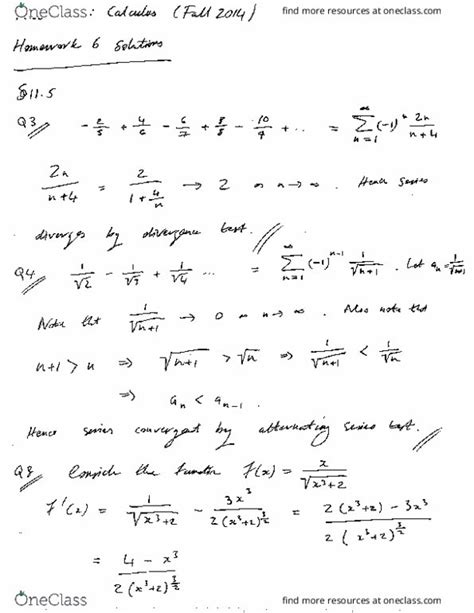 OneClass: Calculus (Fall 2014) find more resources at oneclass.com
Homework 6 Solutions
§11.5
Q3 -2/5 + 4/6 - 6/7 + 8/8 - 10/9 + ... = ∑_{n=1}^{∞} (-1)^n 2n/(n+4)
2n/(n+4) = 2/(1+4/n) → 2 as n→∞. Hence series
diverges by divergence test.
Q4 1/√2 - 1/√3 + 1/√4 ... = ∑_{n=1}^{∞} (-1)^{n-1} 1/√(n+1). Let a_n = 1/√(n+1)
Note that 1/√(n+1) → 0 as n→∞. Also note that
n+1 > n ⇒ √(n+1) > √n ⇒ 1/√(n+1) < 1/√n
⇒ a_n < a_{n-1}.
Hence series convergent by alternating series test.
Q8 Consider the function f(x) = x/√(x³+2)
f'(x) = 1/√(x³+2) - 3x³/(2(x³+2)^{3/2}) = (2(x³+2) - 3x³)/(2(x³+2)^{3/2})
= (4 - x³)/(2(x³+2)^{3/2})
OneClass find more resources at oneclass.com